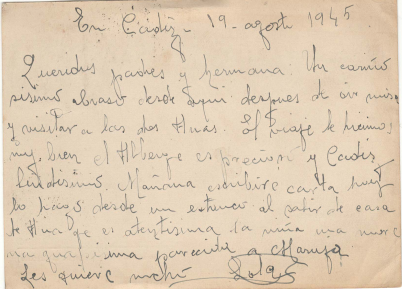 En Cádiz - 19 - agosto 1945
Queridos padres y hermana: Un cariño
sisimo abrazo desde aquí despues de oir misa
y visitar a las dos Huas. El viaje lo hicimos
muy bien el Albergue es precioso y Cadiz
lindisimo. Mañana escribiré carta hoy
lo hago desde un estanco al salir de casa
de Hua que es atentisima la niña una more
na guapisima parecida a Maruja
Les quiere mucho Lola